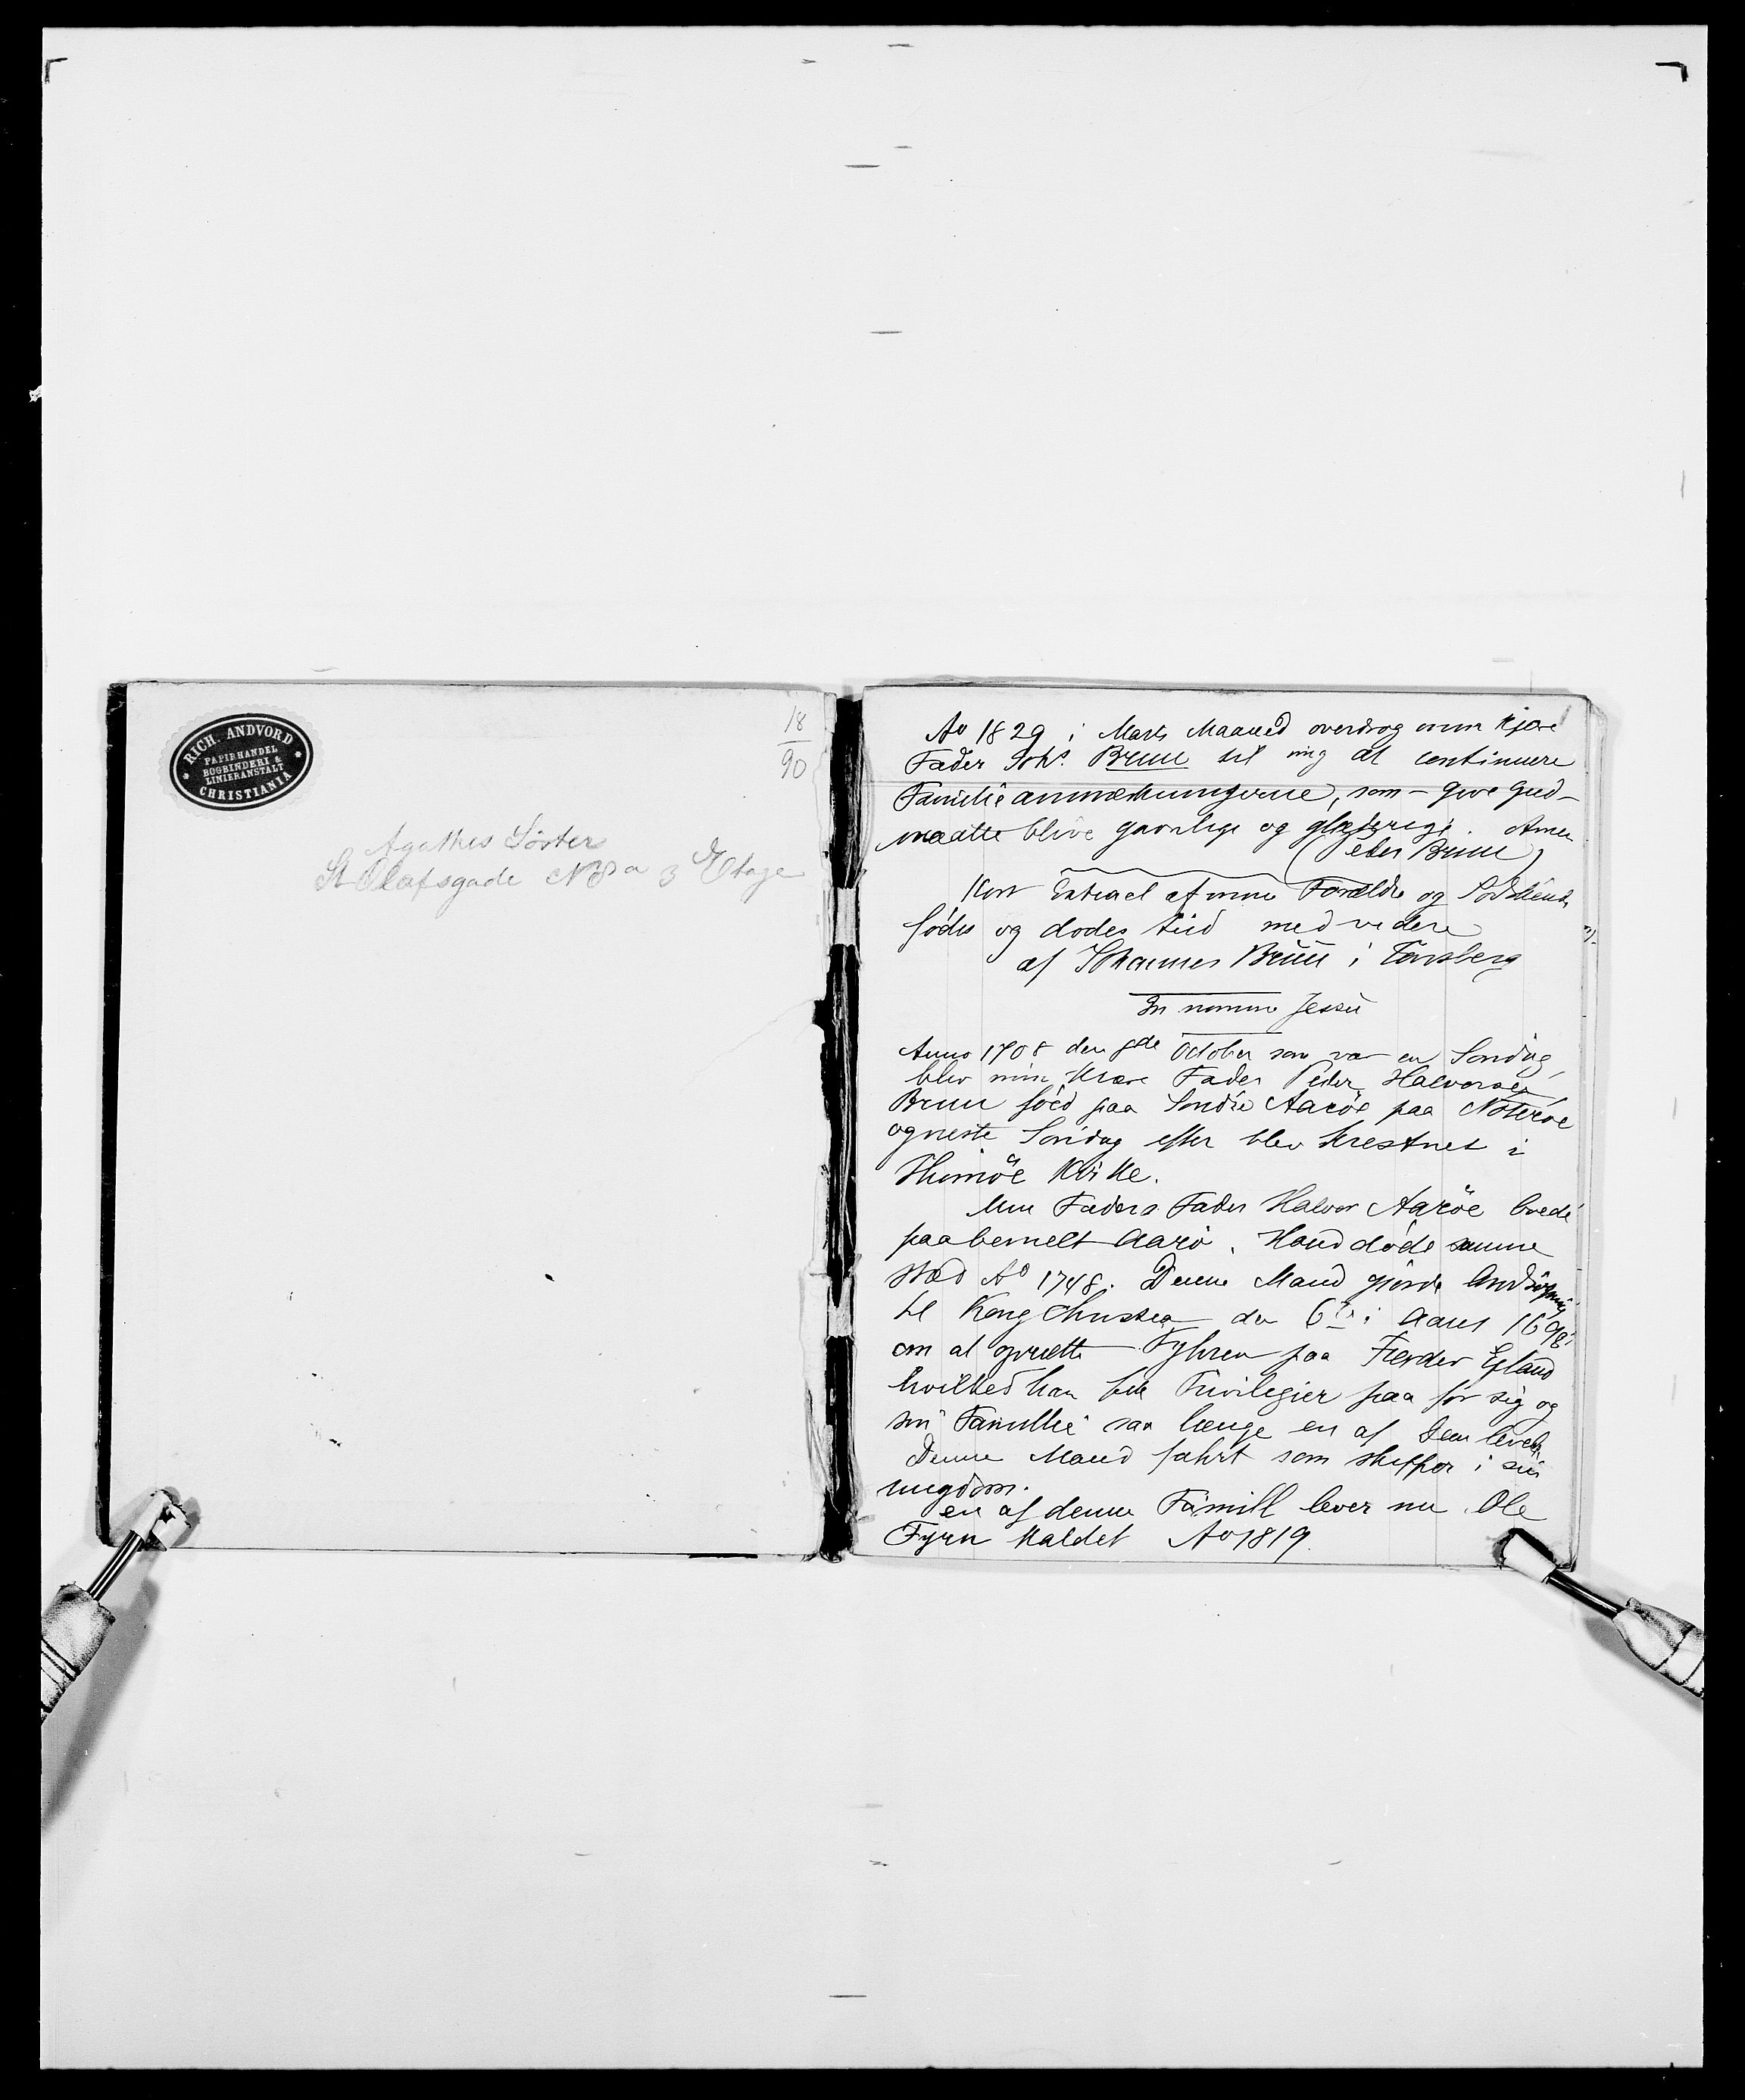 RICH. ANDVORD
PAPIRHANDEL
BOGBINDERI &
LINIERANSTALT
CHRISTIANIA
18
90
Agathes Søster
St Olafsgade N 8a 3 Etage
Ao 1829 i Marts Maaned overdrog min kjære
Fader Johs. Bruun til mig at continuere
Familieanmærkningerne, som – give Gud –
maatte blive gavnlige og glæderige. Amen
(Peder Bruun)
Kort Extract af mine Forældre og Sødskends
fødes og dødes tiid med videre
af Johannes Bruun i Tønsberg
In nomine Jessu
Anno 1708 den October som var en Søndag,
blev min Kære Fader Peder Halvorsen
Bruun föed paa Søndre Aaröe paa Nöteröe
og neste Söndag efter blev Krestnet i
Kirke.
Min Faders Fader Halvor Aaröe boede
paa bemelt Aarö. Hand döde samme
Stæd Ao 1748. Denne Mand giorde Andsögning
til Kong Christian den 6te i Aaret 1698
om at oprette Fyhren paa Færder Eyland
hvilket han fik Privilegier paa for sig og
sin Famillie saa længe en af Dem levede
Denne Mand fahrt som skipper i sin
ungdom.
en af denne Famill lever nu Ole
Fyren kaldet Ao 1819.